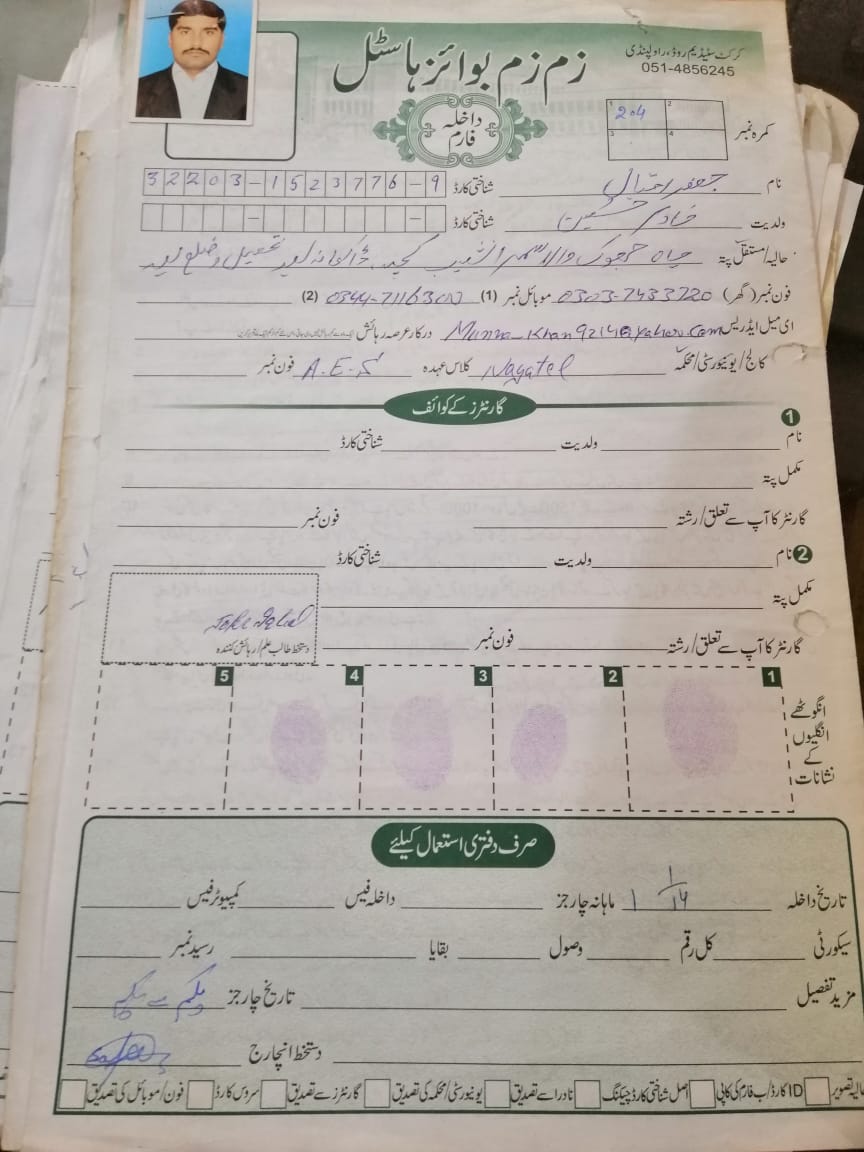 زم زم بوائز ہاسٹل
کرکٹ سٹیڈیم روڈ، راولپنڈی
051-4856245
داخلہ فارم
کمرہ نمبر 1 204 2 3 4
نام جعفر اقبال شناختی کارڈ 32203-1523776-9
ولدیت خادم حسین شناختی کارڈ - -
حالیہ/مستقل پتہ چاہ
فون نمبر (گھر) 0303-7433720 موبائل نمبر (1) 0344-71163 (2)
ای میل ایڈریس Munna_Khan9214@yahoo.com درکار عرصہ رہائش
کالج/یونیورسٹی/محکمہ Nayatel کلاس عہدہ A.E.S فون نمبر
گارنٹرز کے کوائف
1
نام ولدیت شناختی کارڈ
مکمل پتہ
گارنٹر کا آپ سے تعلق/رشتہ فون نمبر
2 نام ولدیت شناختی کارڈ
مکمل پتہ
گارنٹر کا آپ سے تعلق/رشتہ فون نمبر دستخط طالب علم/رہائش کنندہ
1 2 3 4 5
انگوٹھے
انگلیوں
کے
نشانات
صرف دفتری استعمال کیلئے
تاریخ داخلہ 1/1/14 ماہانہ چارجز داخلہ فیس کمپیوٹر فیس
سیکورٹی کل رقم وصول بقایا رسید نمبر
مزید تفصیل تاریخ چارجز یکم سے یکم
دستخط انچارج
حالیہ تصویر ID کارڈ/ب فارم کی کاپی اصل شناختی کارڈ چیکنگ نادرا سے تصدیق یونیورسٹی/محکمہ کی تصدیق گارنٹرز سے تصدیق سروس کارڈ فون/موبائل کی تصدیق